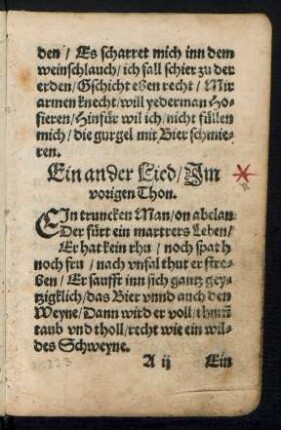 den / Es scharret mich inn dem
weinschlauch / ich fall schier zu der
erden / Gschicht eßen recht / Mir
armen knecht / will yederman Ho-
fieren / Hinfür wil ich / nicht füllen
mich / die gurgel mir Bier schmie-
ren.
Ein ander Lied / Im
vorigen Thon.
EIn truncken Man / on abelan
Der fürt ein martrers Leben /
Er hat kein rhu / noch spat h
noch fru / nach vnfal thut er stre-
ben / Er saufft inn sich gantz gey-
tzigklich / das Bier vnnd auch den
Weyne / Dann wird er voll / thum̃
taub vnd tholl / recht wie ein wil-
des Schweyne.
A ij Ein